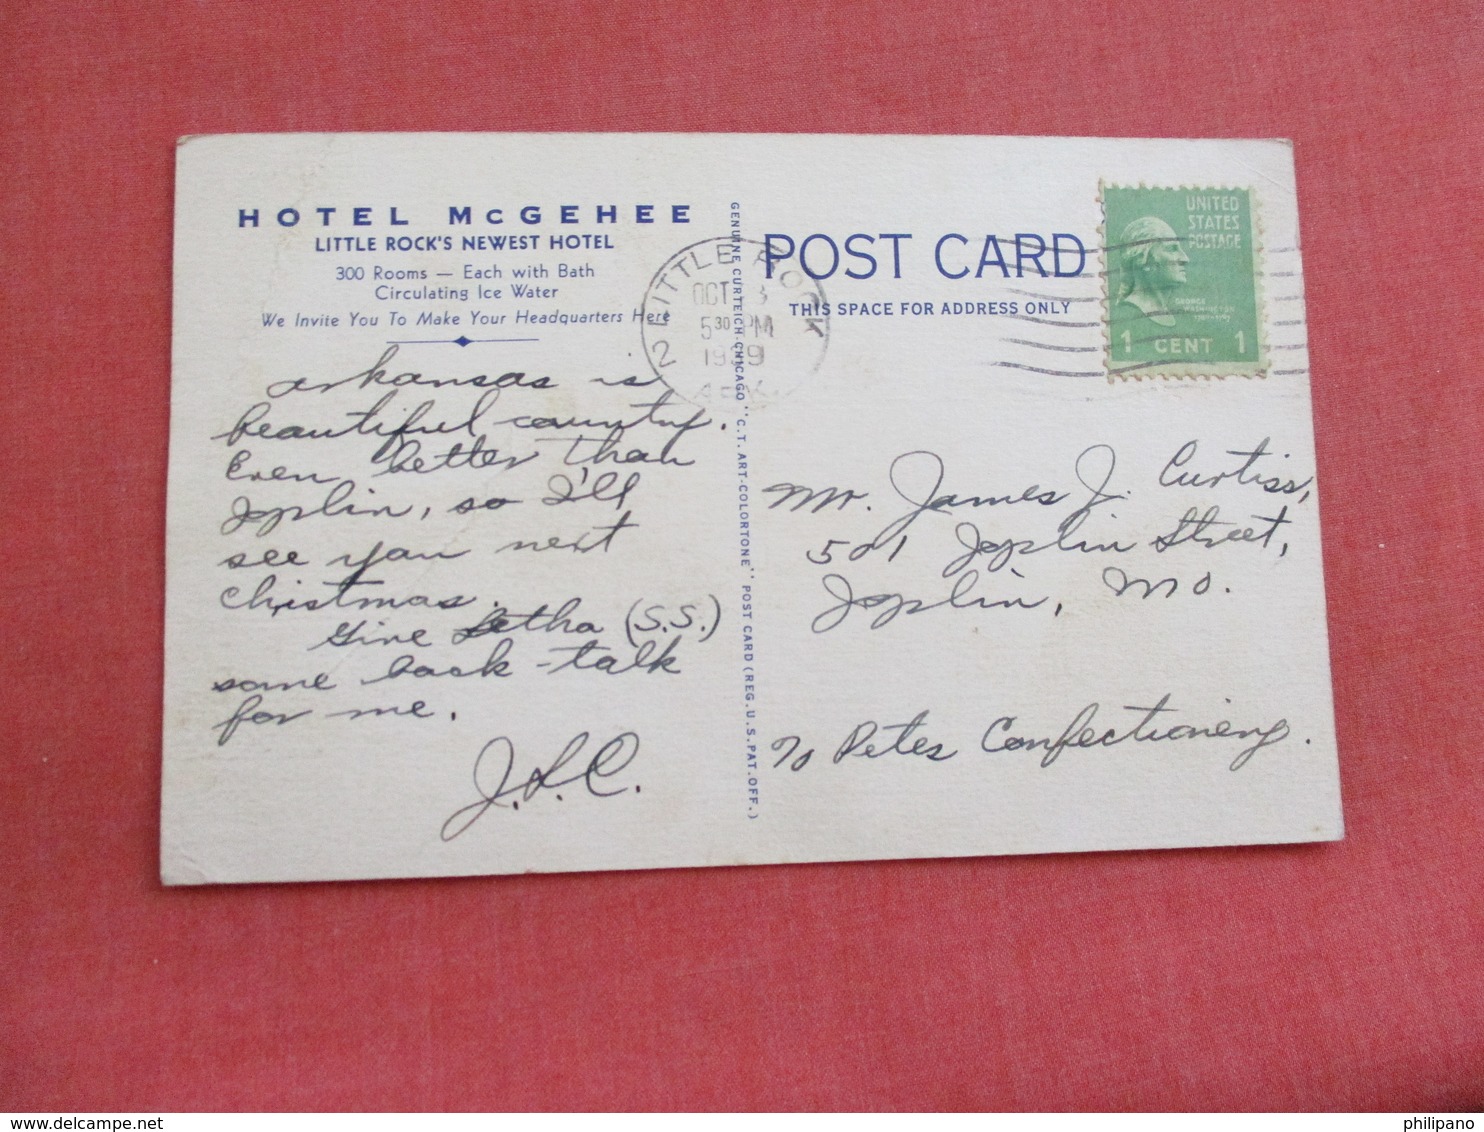 HOTEL McGEHEE
LITTLE ROCK'S NEWEST HOTEL
300 Rooms — Each with Bath
Circulating Ice Water
We Invite You To Make Your Headquarters Here
Arkansas is
beautiful country.
Even better than
Joplin, so I'll
see you next
Christmas.
Give Letha (S.S.)
some back-talk
for me.
J.L.C.
GENUINE CURTEICH-CHICAGO "C.T. ART-COLORTONE" POST CARD (REG. U.S. PAT. OFF.)
2 LITTLE ROCK
OCT
5 30 PM
ARK.
POST CARD
THIS SPACE FOR ADDRESS ONLY
UNITED
STATES
POSTAGE
GEORGE
WASHINGTON
1 CENT 1
Mr. James J. Curtiss,
501 Joplin Street,
Joplin, Mo.
% Petes Confectionery.
philipano